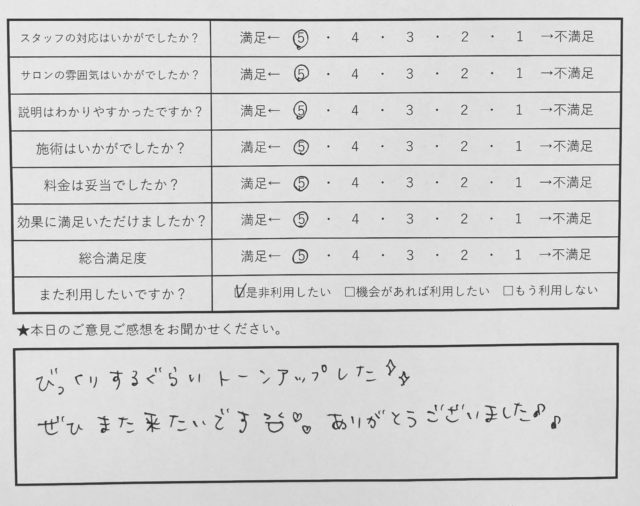 スタッフの対応はいかがでしたか? 満足← 5 ・ 4 ・ 3 ・ 2 ・ 1 →不満足
サロンの雰囲気はいかがでしたか? 満足← 5 ・ 4 ・ 3 ・ 2 ・ 1 →不満足
説明はわかりやすかったですか? 満足← 5 ・ 4 ・ 3 ・ 2 ・ 1 →不満足
施術はいかがでしたか? 満足← 5 ・ 4 ・ 3 ・ 2 ・ 1 →不満足
料金は妥当でしたか? 満足← 5 ・ 4 ・ 3 ・ 2 ・ 1 →不満足
効果に満足いただけましたか? 満足← 5 ・ 4 ・ 3 ・ 2 ・ 1 →不満足
総合満足度 満足← 5 ・ 4 ・ 3 ・ 2 ・ 1 →不満足
また利用したいですか? ☑是非利用したい □機会があれば利用したい □もう利用しない
★本日のご意見ご感想をお聞かせください。
びっくりするぐらい トーンアップした
ぜひ また 来たいです ありがとうございました♪♪